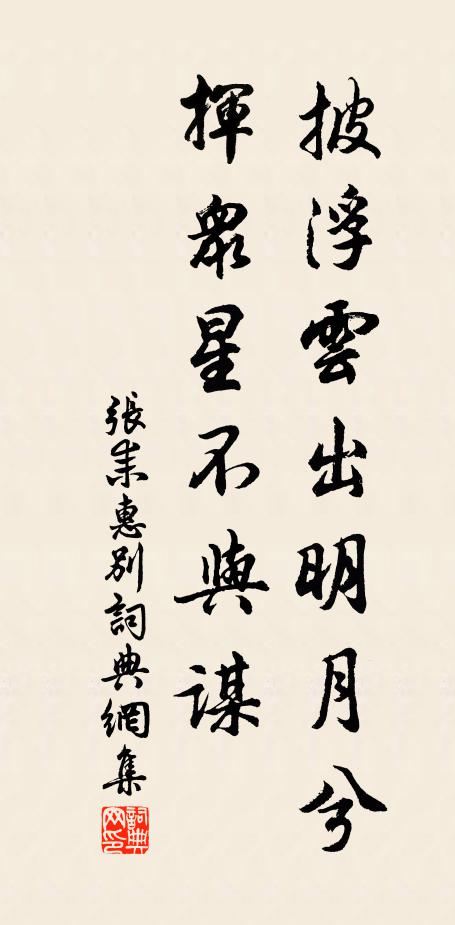 披浮雲出明月兮
揮眾星不與謀
張耒惠别詞典網集
詞典网印